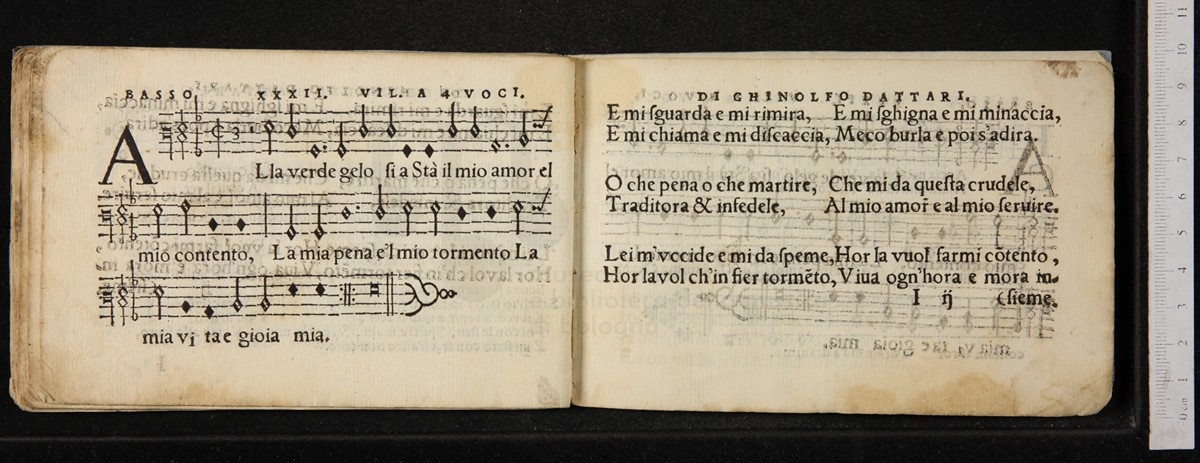 BASSO. XXXII. VIL. A 4 VOCI.
ALla verde gelo ſi a Stà il mio amor el
mio contento, La mia pena e'l mio tormento La
mia vi ta e gioia mia.
DI GHINOLFO DATTARI.
E mi ſguarda e mi rimira, E mi ſghigna e mi minaccia,
E mi chiama e mi diſcaccia, Meco burla e poi s'adira.
O che pena o che martire, Che mi da queſta crudele,
Traditora & infedele, Al mio amor e al mio ſeruire.
Lei m'vccide e mi da ſpeme, Hor la vuol farmi cōtento,
Hor la vol ch'in fier tormēto, Viua ogn'hora e mora in-
I ij (ſieme.
biblioteca
bologna
0 cm 1 2 3 4 5 6 7 8 9 10 11